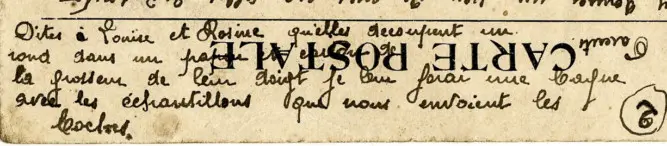 Dites à Louise et Rosine qu'elles decoupent un
rond dans un papier de
la grosseur de leur doigt je leur ferai une bague
avec les échantillons que nous envoient les
Boches.
CARTE POSTALE
6